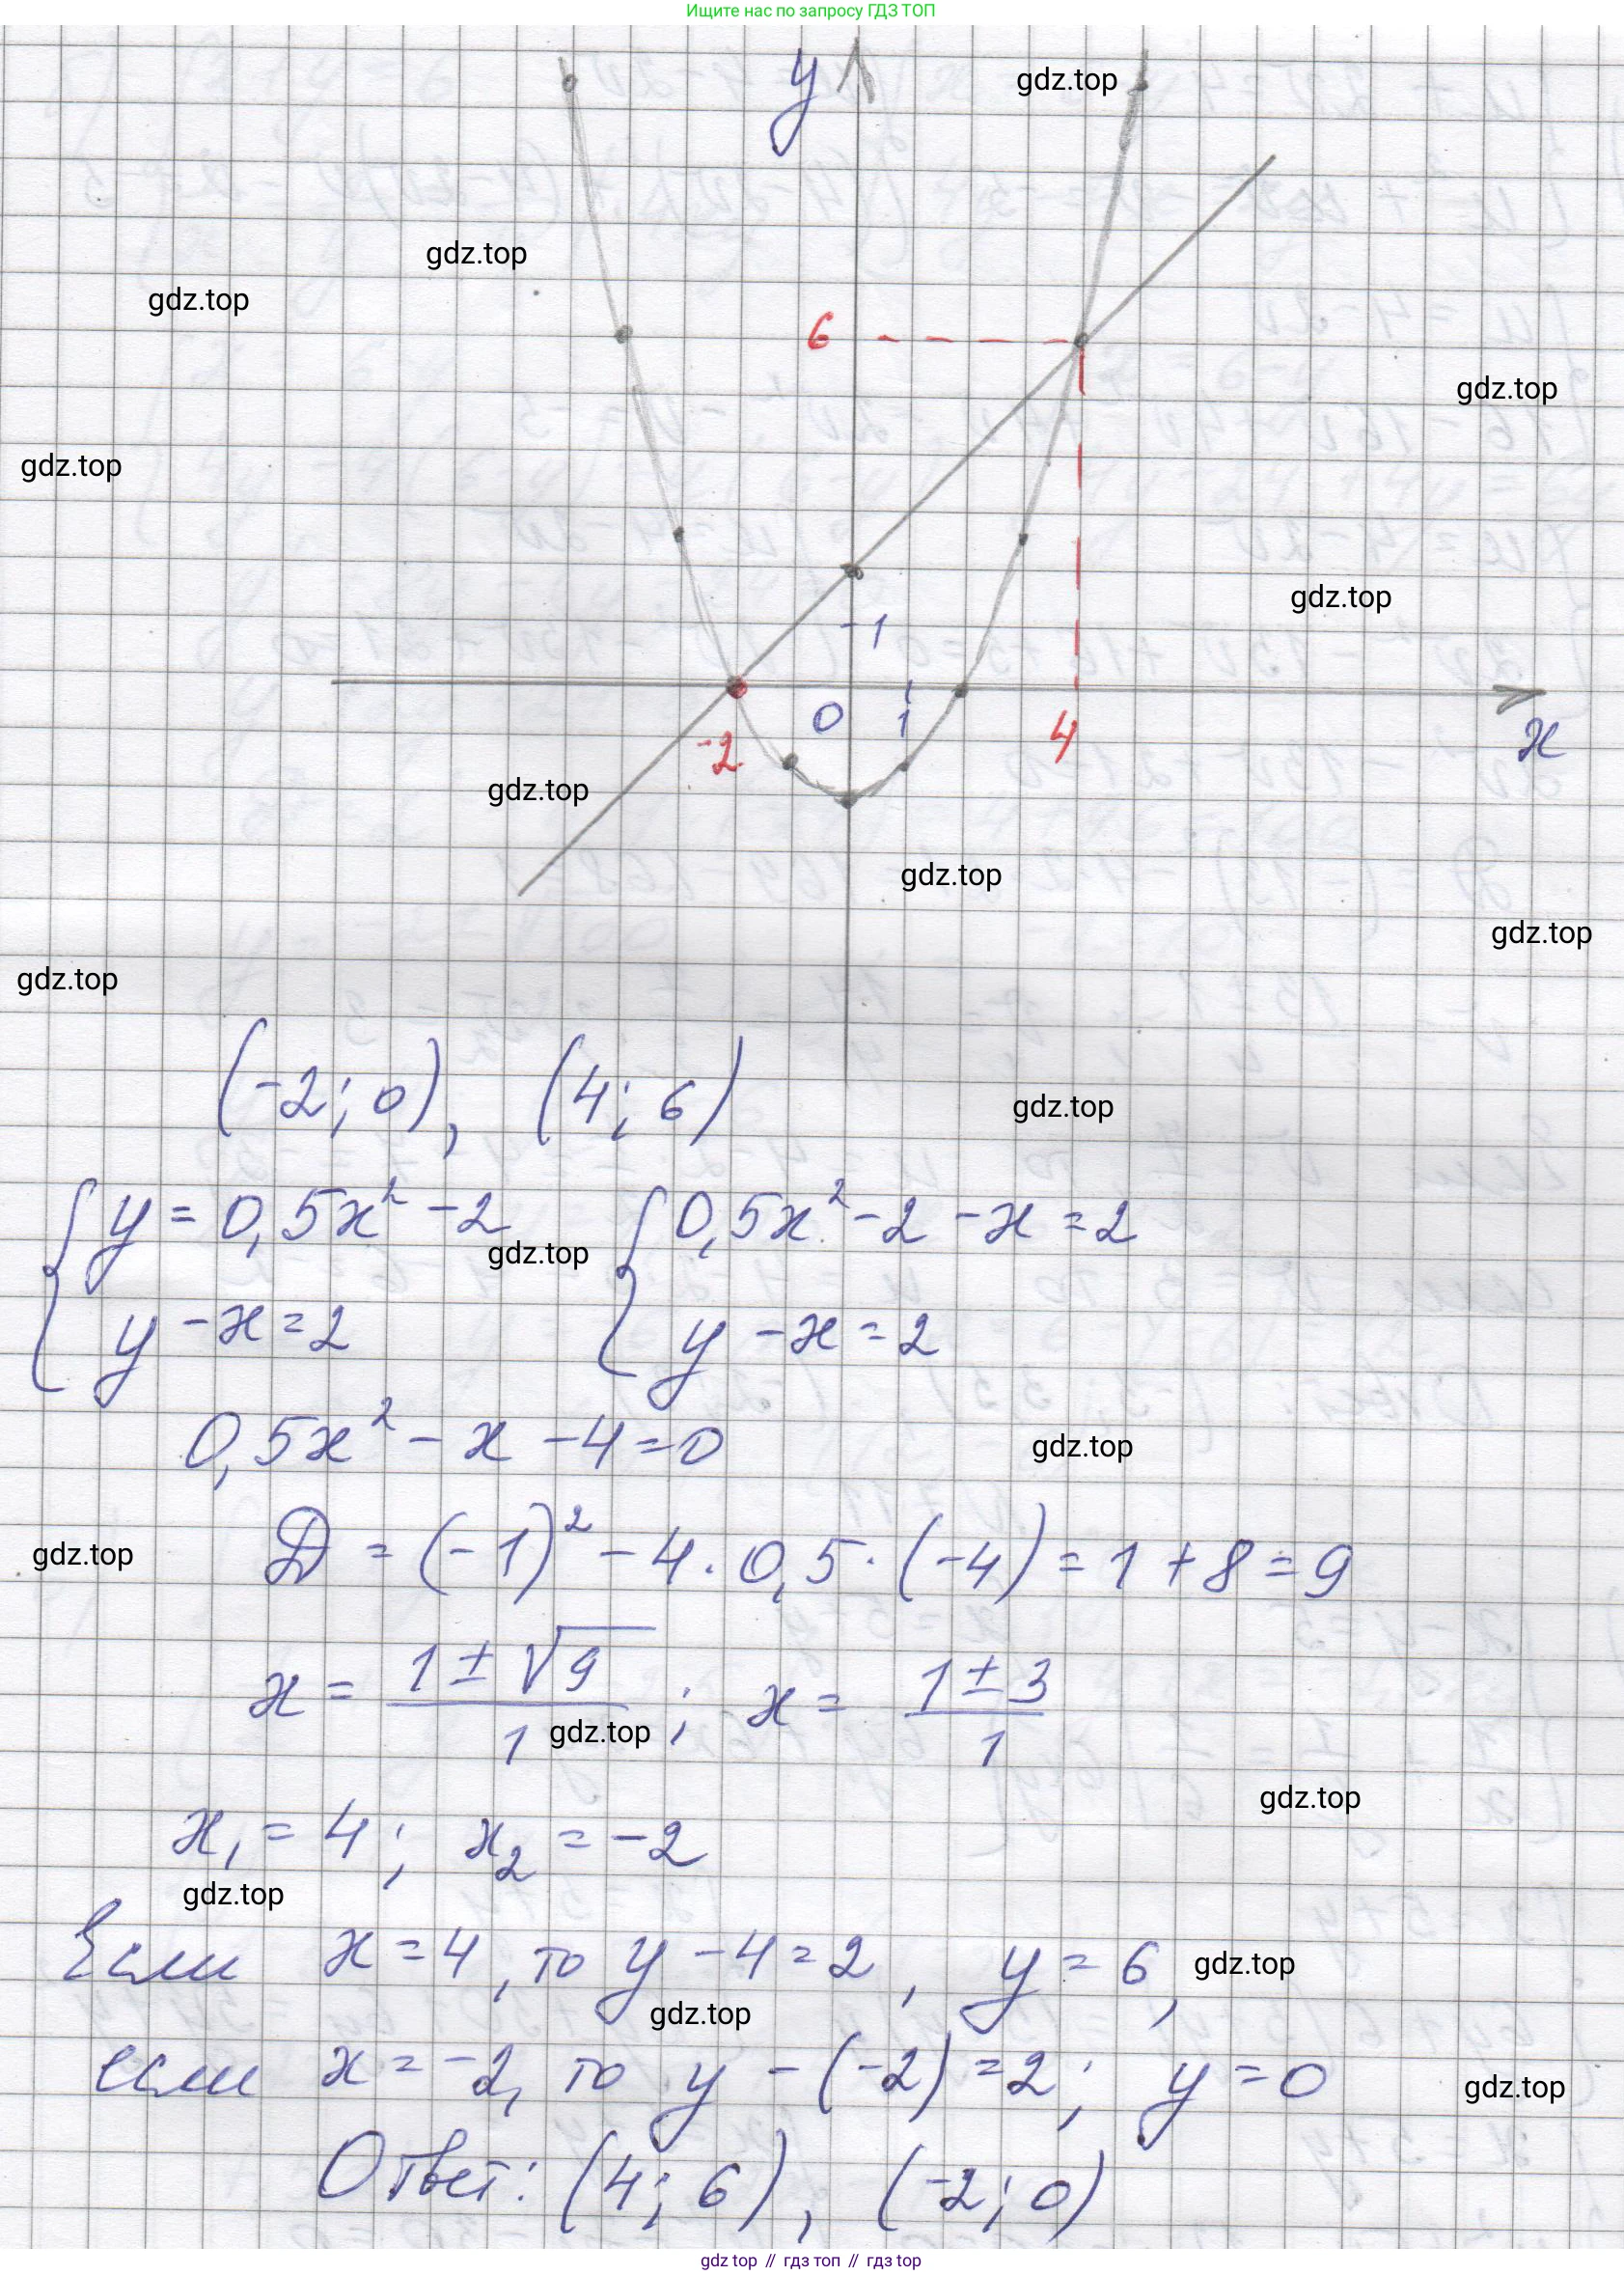 Ищите нас по запросу ГДЗ ТОП
y
gdz.top
gdz.top
gdz.top
6
gdz.top
gdz.top
gdz.top
1
0
1
-2
4
x
gdz.top
gdz.top
gdz.top
gdz.top
(-2; 0), (4; 6)
gdz.top
{ y = 0,5x² - 2 { 0,5x² - 2 - x = 2
gdz.top
y - x = 2 y - x = 2
0,5x² - x - 4 = 0
gdz.top
D = (-1)² - 4 · 0,5 · (-4) = 1 + 8 = 9
gdz.top
x = (1 ± √9)/1 ; x = (1 ± 3)/1
gdz.top
gdz.top
x₁ = 4; x₂ = -2
gdz.top
Если x = 4, то y - 4 = 2, y = 6,
gdz.top
gdz.top
если x = -2, то y - (-2) = 2; y = 0
gdz.top
Ответ: (4; 6), (-2; 0)
gdz top // гдз топ // гдз top